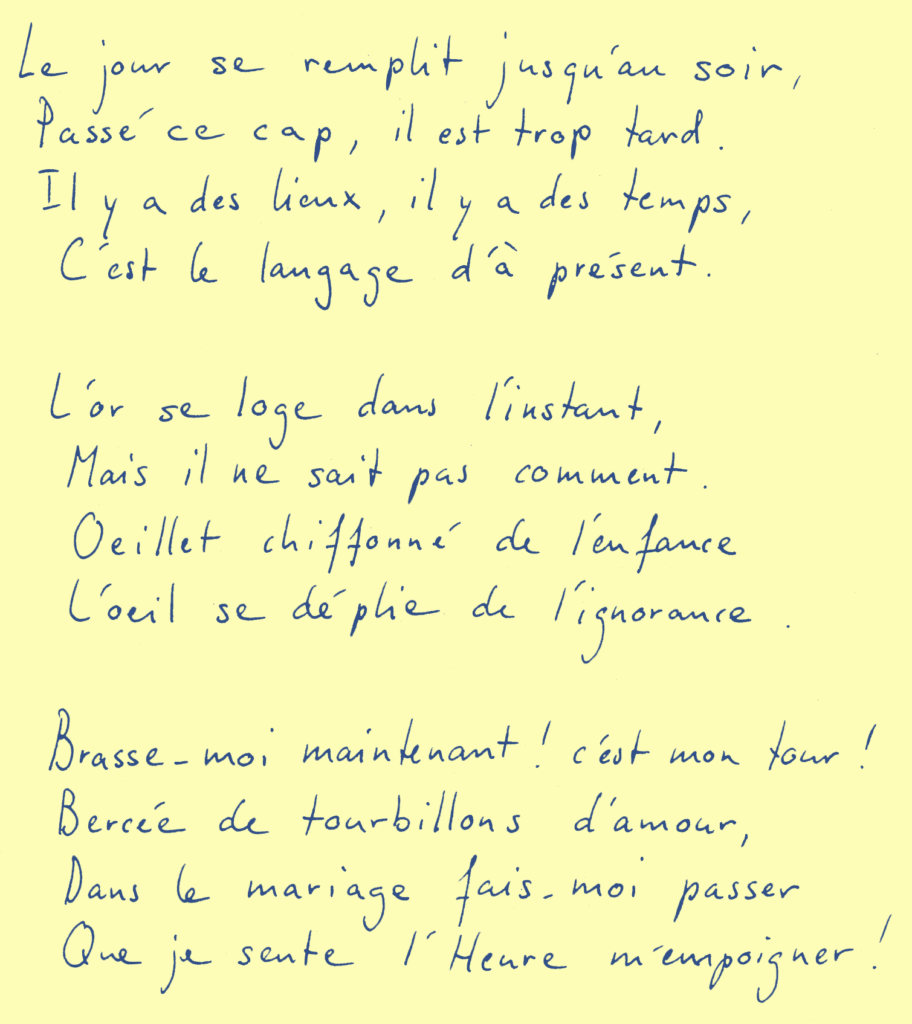 Le jour se remplit jusqu'au soir,
Passé ce cap, il est trop tard.
Il y a des lieux, il y a des temps,
C'est le langage d'à présent.

L'or se loge dans l'instant,
Mais il ne sait pas comment.
Oeillet chiffonné de l'enfance
L'oeil se déplie de l'ignorance.

Brasse-moi maintenant ! c'est mon tour !
Bercée de tourbillons d'amour,
Dans le mariage fais-moi passer
Que je sente l'Heure m'empoigner !